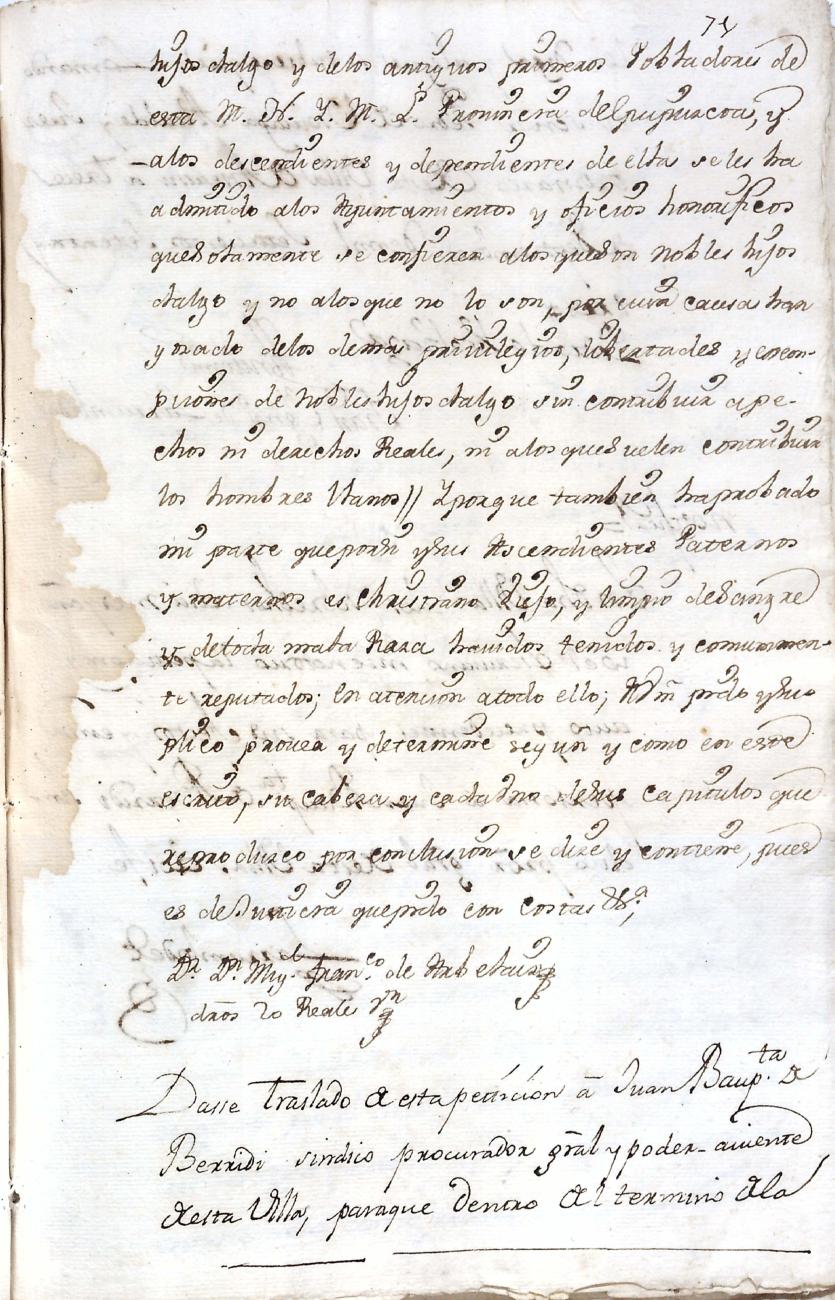 74
hijos dalgo y delos antiguos primeros Pobladores de
esta M. N. Y. M. L. Provincia de Guipuzcoa, y
alos descendientes y dependientes de ella se les ha
admitido alos Ayuntamientos y oficios honorificos
que solamente se confieren alos que son nobles hijos
dalgo y no alos que no lo son, por cuia causa han
gozado delos demas privilegios, libertades y exen-
piones de nobles hijos dalgo sin contribuir a pe-
chos ni derechos Reales, ni alos que suelen contribuir
los hombres llanos// Y porque tambien ha probado
mi parte que por si y sus Ascendientes Paternos
y maternos es Christiano Viejo, y limpio de Sangre
y de toda mala Raza havidos tenidos y comunmen-
te reputados; En atencion atodo ello; A Vm pido y su
plico provea y determine segun y como en este
escrito, su cabeza y cada uno de sus capitulos que
reproduzco por conclusion se dize y contiene, pues
es de Justicia que pido con costas &.a,
Dr. Dn. Mig.l Fran.co de Arbelaiz
dros 20 Reales
Dasse Traslado de esta peticion â Juan Baup.ta de
Berridi sindico procurador gral y poder-aviente
de esta Villa, paraque dentro del termino de la